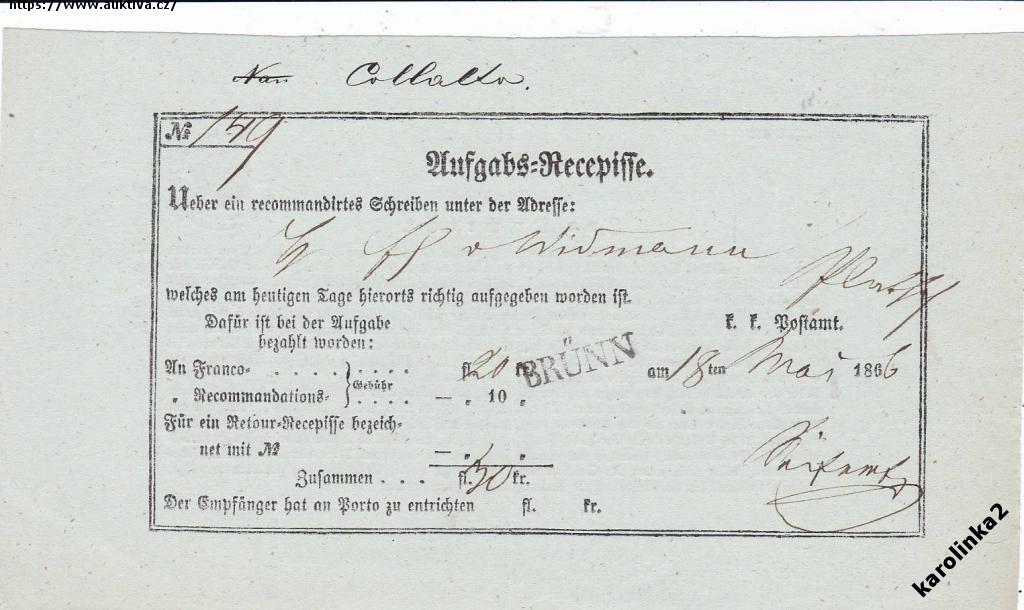 https://www.auktiva.cz/
Collalto.
№ 159
Aufgabs-Recepisse.
Ueber ein recommandirtes Schreiben unter der Adresse:
v Widmann
welches am heutigen Tage hierorts richtig aufgegeben worden ist.
Dafür ist bei der Aufgabe k. k. Postamt.
bezahlt worden:
An Franco- . . . . . . . . fl. 20 kr. BRÜNN am 18ten Mai 1866
„ Recommandations- Gebühr . . . . — „ 10 „
Für ein Retour-Recepisse bezeich-
net mit № — „ „
Zusammen . . . fl. 30 kr.
Der Empfänger hat an Porto zu entrichten fl. kr.
karolinka2